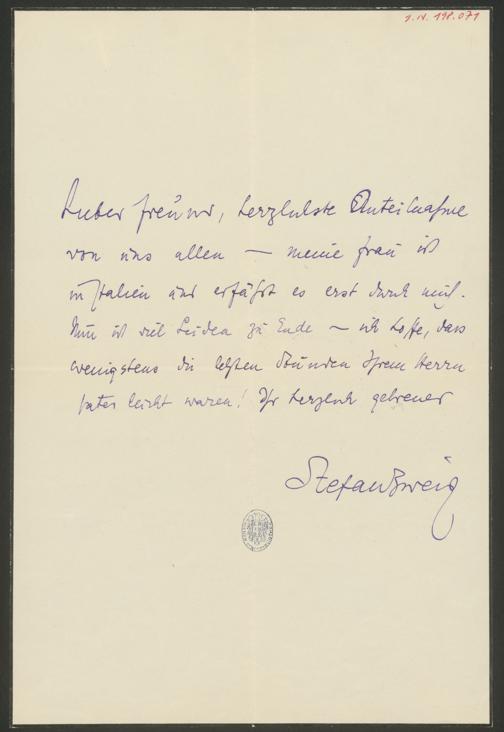 1.N. 198.071
Lieber Freund, herzlichste Anteilnahme
von uns allen — meine Frau ist
in Italien und erfährt es erst durch mich.
Nun ist viel Leiden zu Ende — ich hoffe, dass
wenigstens die letzten Stunden Ihrem Herrn
Vater leicht waren! Ihr herzlich getreuer
Stefan Zweig